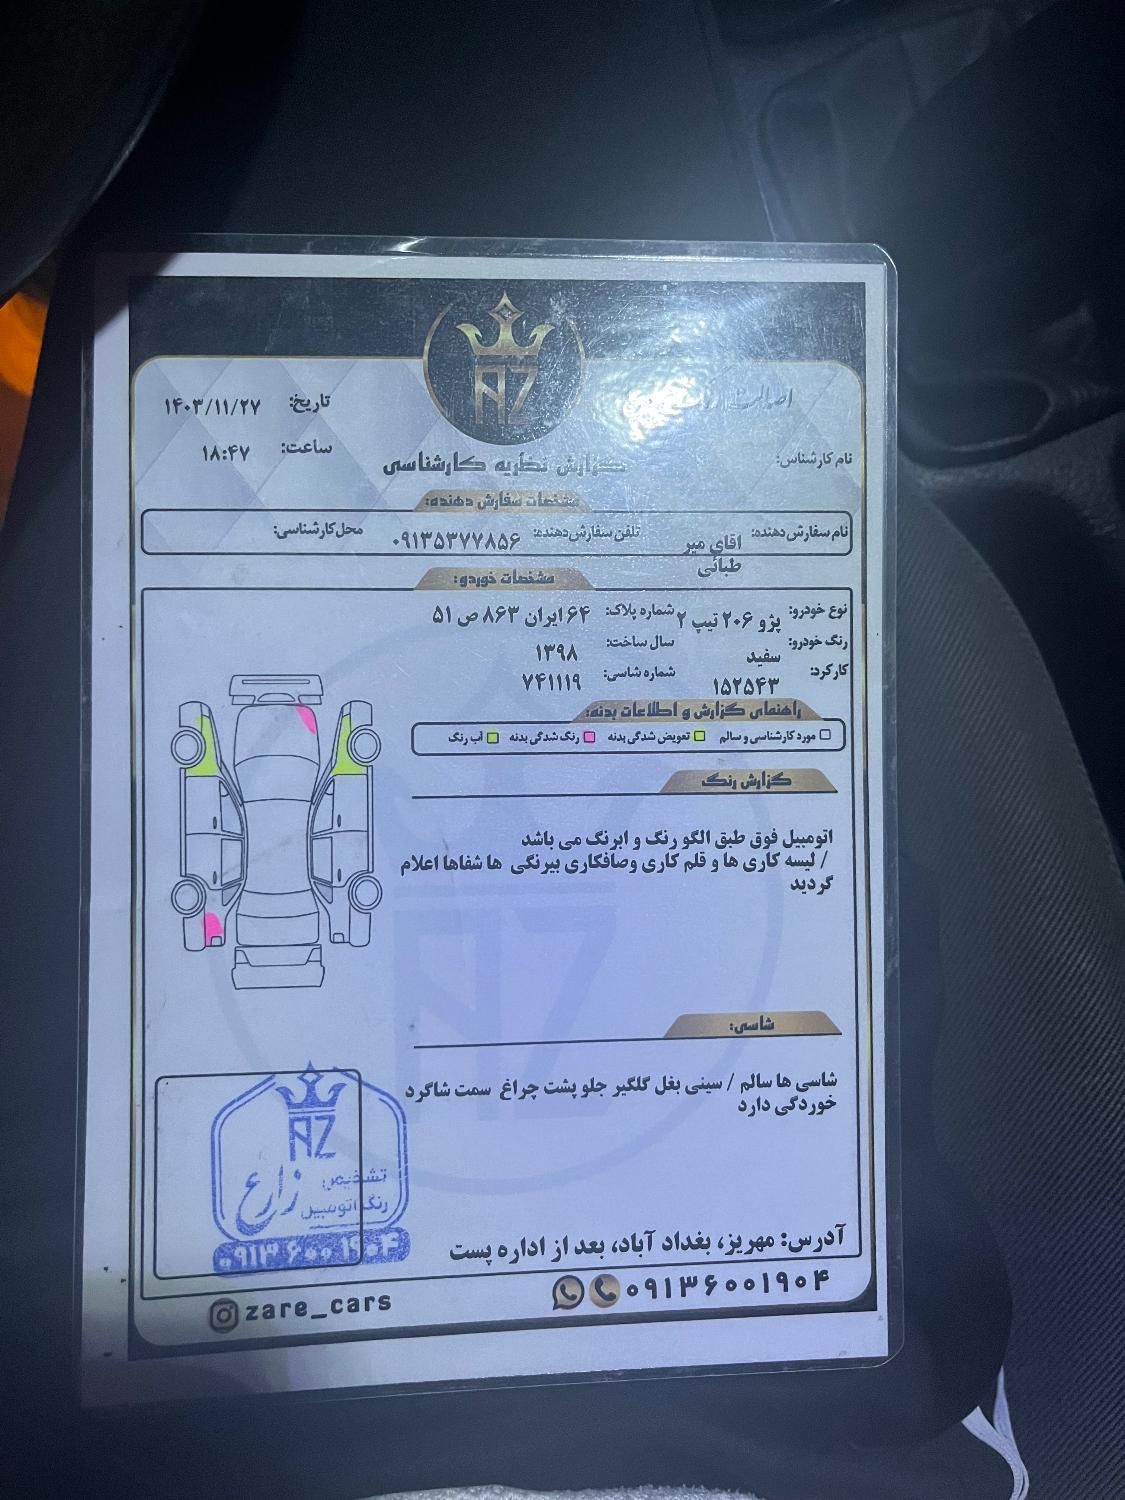 AZ
اصالت
تاریخ: ۱۴۰۳/۱۱/۲۷
نام کارشناس:
ساعت: ۱۸:۴۷
گزارش نظریه کارشناسی
مشخصات سفارش دهنده:
نام سفارش دهنده: اقای میر طبائی تلفن سفارش دهنده: ۰۹۱۳۵۳۷۷۸۵۶ محل کارشناسی:
مشخصات خوردو:
نوع خودرو: پژو ۲۰۶ تیپ ۲ شماره پلاک: ۶۴ ایران ۸۶۳ ص ۵۱
رنگ خودرو: سفید سال ساخت: ۱۳۹۸
کارکرد: ۱۵۲۵۴۳ شماره شاسی: ۷۴۱۱۱۹
راهنمای گزارش و اطلاعات بدنه:
مورد کارشناسی و سالم تعویض شدگی بدنه رنگ شدگی بدنه آب رنگ
گزارش رنگ
اتومبیل فوق طبق الگو رنگ و ابرنگ می باشد
/ لیسه کاری ها و قلم کاری وصافکاری بیرنگی ها شفاها اعلام
گردید
شاسی:
شاسی ها سالم / سینی بغل گلگیر جلو پشت چراغ سمت شاگرد
خوردگی دارد
AZ
تشخیص
رنگ اتومبیل
زارع
۰۹۱۳۶۰۰۱۹۰۴
آدرس: مهریز، بغداد آباد، بعد از اداره پست
۰۹۱۳۶۰۰۱۹۰۴
zare_cars